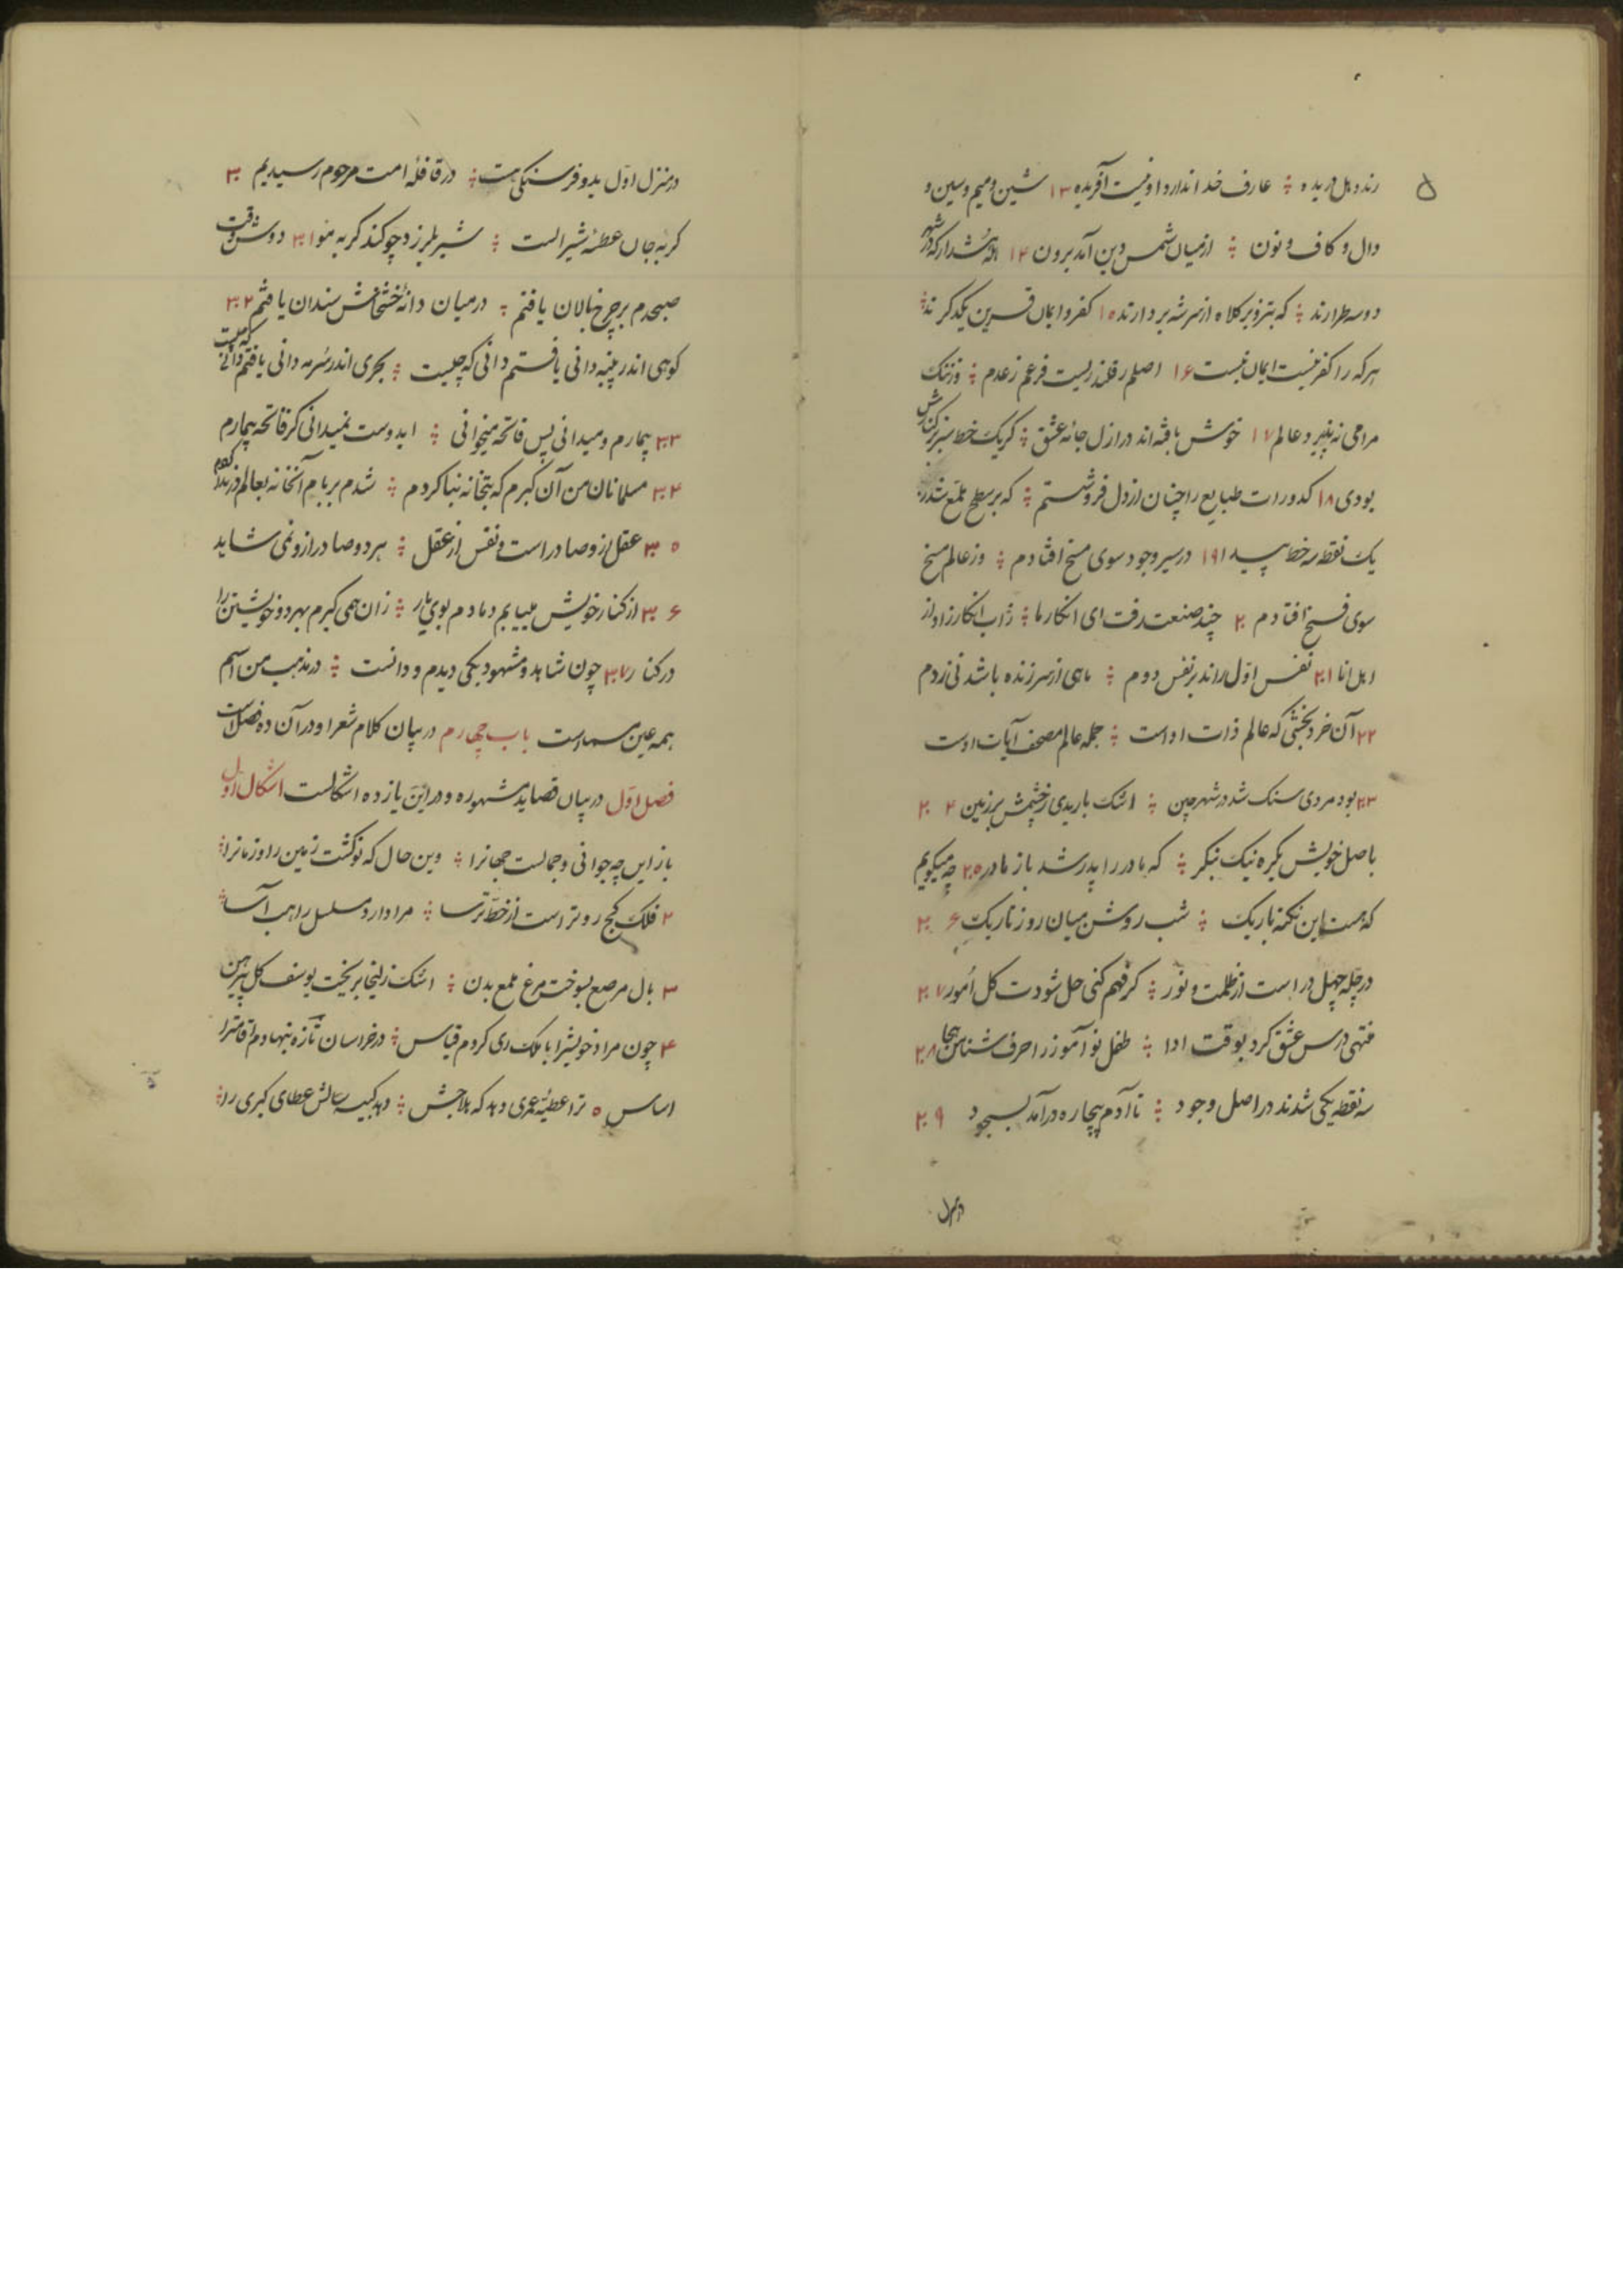 ۵
رند و دل دریده ؞ عارف خدا ندارد او نیست آفریده ۱۳ شین و میم و سین و
دال و کاف و نون ؞ از میان شمس دین آمد برون ۱۴ هشدار که در شهر
دو سه طرارند ؞ که بتزویر کلاه از سر شه بردارند ۱۵ کفر و ایمان قرین یکدکرند ؞
هرکه را کفر نیست ایمان نیست ۱۶ اصلم ز قلندریست فرعم ز عدم ؞ وز ننک
مرا می نه پذیرد عالم ۱۷ خوش بافته اند در ازل جامه عشق ؞ کر یک خط سبز بر کنارش
بودی ۱۸ کدورات طبایع را چنان از دل فرو شستم ؞ که بر سطح
یک نقطه سه خط پیدا ۱۹ در سیر وجود سوی مسخ افتادم ؞ وز عالم مسخ
سوی فسخ افتادم ۲۰ چند صنعت رفت ای انکار ما ؞ انکار زاد از
۲۱ نفس اول راند بر نفس دوم ؞ ماهی از سر زنده باشد نی ز دم
۲۲ آن خرد بخشی که عالم ذات اوست ؞ جمله عالم مصحف آیات اوست
۲۳ بود مردی سنک شد در شهر چین ؞ اشک باریدی ز چشمش بر زمین ۲۴
باصل خویش یکره نیک بنکر ؞ که مادر را پدر شد باز مادر ۲۵ چه میکویم
که هست این نکته باریک ؞ شب روشن میان روز تاریک ۲۶
در چله چهل در است از ظلمت و نور ؞ کر فهم کنی حل شودت کل امور ۲۷
منتهی درس عشق کرد بوقت ادا ؞ طفل نو آموز را حرف شناس هجا ۲۸
سه نقطه یکی شدند در اصل وجود ؞ تا آدم بیچاره درآمد بسجود ۲۹
در منزل
در منزل اول بدو فرسنکی هست ؞ در قافله امت مرحوم رسیدیم ۳۰
کربه جان عطسه شیر است ؞ شیر بلرزد چو کند کربه مو ۳۱ دوش وقت
صبحدم بر چرخ پالان یافتم ؞ در میان دانه خشخاش سندان یافتم ۳۲
کوهی اندر پنبه دانی یافتم دانی که چیست ؞ بحری اندر سرمه دانی یافتم دانی که چیست
۳۳ بیمارم و میدانی پس فاتحه میخوانی ؞ ایدوست نمیدانی کز فاتحه بیمارم
۳۴ مسلمانان من آن کبرم که بتخانه بنا کردم ؞ شدم بر بام آنخانه بعالم در ندا کردم
۳۵ عقل ازو صادر است و نفس از عقل ؞ هر دو صادر ازو نمی شاید
۳۶ از کنار خویش مییابم دمادم بوی یار ؞ زان همی کیرم بهر دم خویشتن را
در کنار ۳۷ چون شاهد و مشهود یکی دیدم و دانست ؞ در مذهب من اسم
همه عین مسماست باب چهارم در بیان کلام شعرا و در آن ده فصل است
فصل اول در بیان قصاید مشهوره و در این یازده اشکالست اشکال اول
باز این چه جوانی و جمالست جهانرا ؞ وین حال که نو کشت زمین را و زمانرا ؞
۲ فلک کج رو تر است از خط ترسا ؞ مرا دارد مسلسل راهب آسا ؞
۳ بال مرصع بسوخت مرغ ملمع بدن ؞ اشک زلیخا بریخت یوسف کل پیرهن
۴ چون مراد خویشرا با ملک ری کردم قیاس ؞ در خراسان تازه بنهادم اقامترا
اساس ۵ ترا عطیه عمری دهد که ؞ دهد کبری را ؞